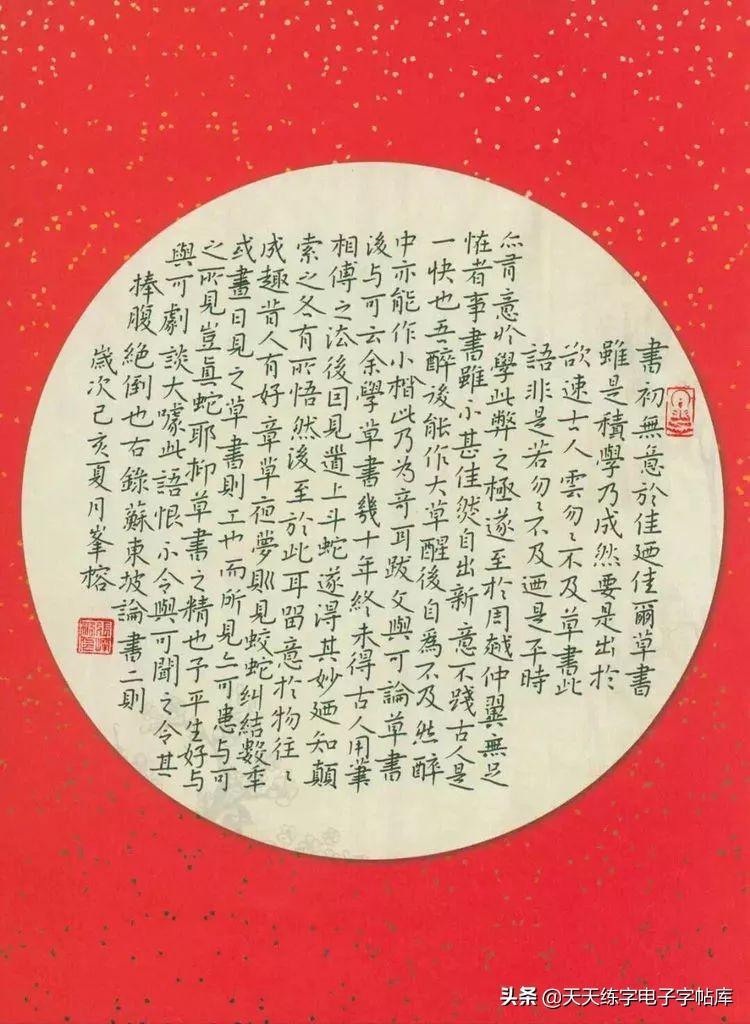 書初無意於佳廼佳爾草書
雖是積學乃成然要是出於
欲速古人雲勿〻不及草書此
語非是若勿〻不及廼是平時
亦有意於學此弊之極遂至於周越仲翼無足
恠者事書雖小甚佳然自出新意不踐古人是
一快也吾醉後能作大草醒後自為不及然醉
中亦能作小楷此乃為奇耳跋文與可論草書
後与可云余學草書幾十年終未得古人用筆
相傳之法後因見道上斗蛇遂得其妙廼知顛
索之各有所悟然後至於此耳留意於物往〻
成趣昔人有好章草夜夢則見蛟蛇糾結數年
或畫日見之草書則工也而所見亦可患与可
之所見豈真蛇耶抑草書之精也予平生好与
與可劇談大噱此語恨不令與可聞之令其
捧腹絕倒也右錄蘇東坡論書二則
歲次己亥夏月峯榕
头条 @天天练字电子字帖库